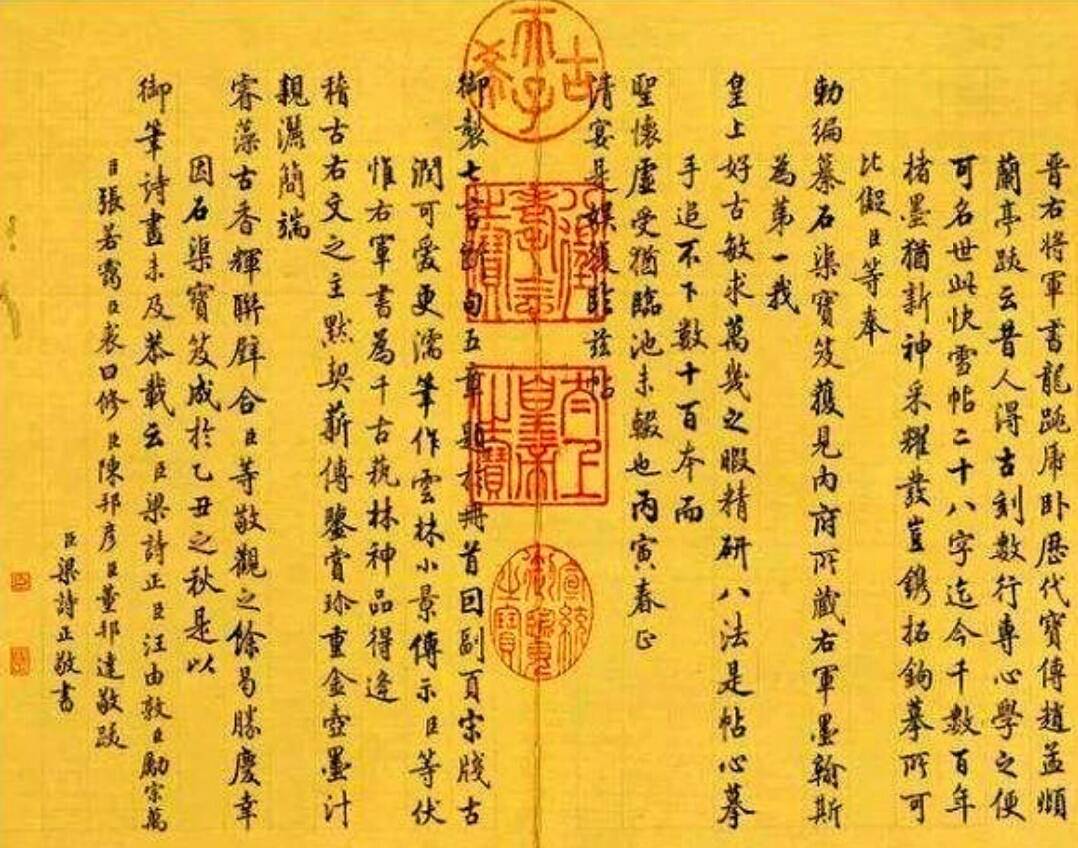 晋右將軍書龍跳虎卧歷代寶傳趙孟頫
蘭亭跋云昔人得古刻數行專心學之便
可名世此快雪帖二十八字迄今千數百年
楮墨猶新神采耀發豈鐫拓鉤摹所可
比儗臣等奉
勅編纂石渠寶笈獲見内府所藏右軍墨翰斯
為第一我
皇上好古敏求萬幾之暇精研八法是帖心摹
手追不下數十百本而
聖懷虛受猶臨池未輟也丙寅春正
清宴是娯復臨兹帖
御製七言斷句五章題於冊首回副頁宋牋古
潤可愛更濡筆作雲林小景傳示臣等伏
惟右軍書為千古蓺林神品得逢
稽古右文之主默契薪傳鑒賞珍重金壺墨汁
親灑簡端
睿藻古香輝聯璧合臣等敬觀之餘曷勝慶幸
因石渠寶笈成於乙丑之秋是以
御筆詩畫未及恭載云臣梁詩正臣汪由敦臣勵宗萬
臣張若靄臣裘曰修臣陳邦彦臣董邦達敬跋
臣梁詩正敬書
古希天子
八徵耄念之寶
太上皇帝之寶
宣統御覽之寶